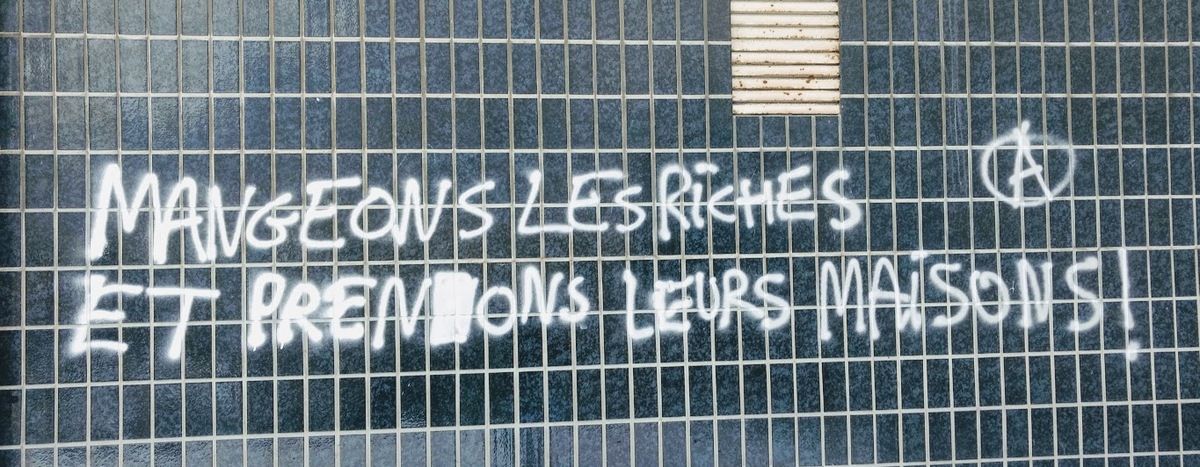 MANGEONS LES RÏCHES
ET PRENONS LEURS MAÏSONS !
Ⓐ